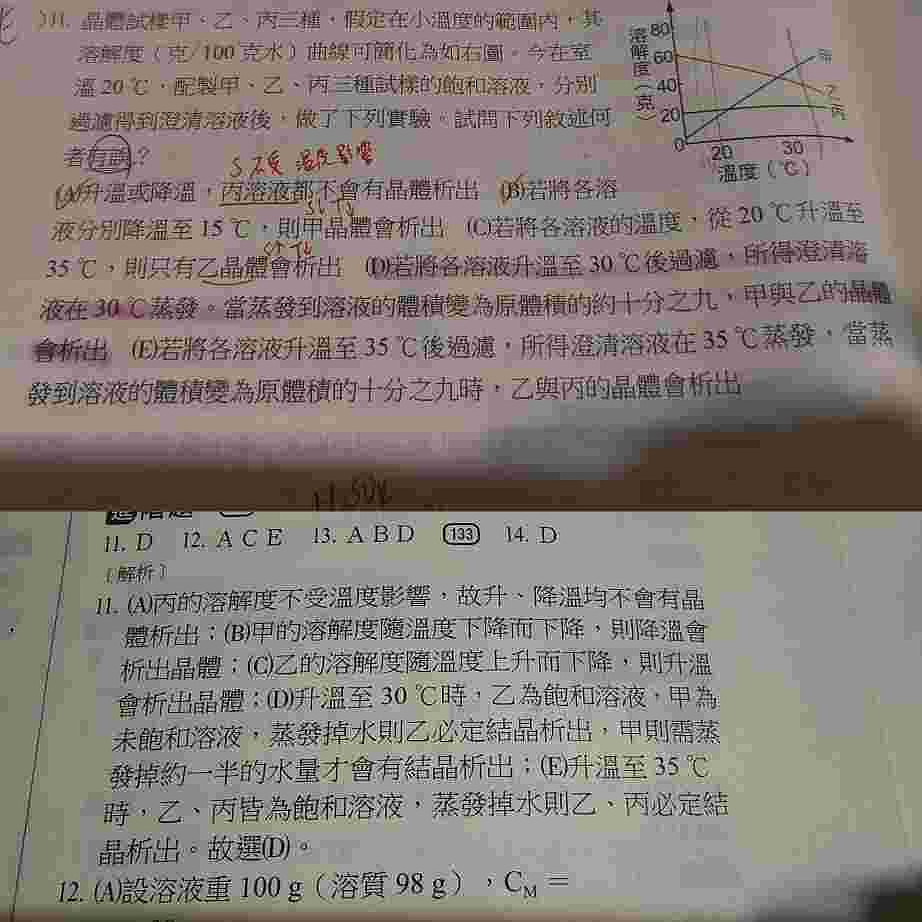 11. 晶體試樣甲、乙、丙三種，假定在小溫度的範圍內，其
溶解度（克/100 克水）曲線可簡化為如右圖。今在室
溫 20 ℃，配製甲、乙、丙三種試樣的飽和溶液，分別
過濾得到澄清溶液後，做了下列實驗。試問下列敘述何
者有誤？
(A)升溫或降溫，丙溶液都不會有晶體析出 (B)若將各溶
液分別降溫至 15 ℃，則甲晶體會析出 (C)若將各溶液的溫度，從 20 ℃升溫至
35 ℃，則只有乙晶體會析出 (D)若將各溶液升溫至 30 ℃後過濾，所得澄清溶
液在 30 ℃蒸發。當蒸發到溶液的體積變為原體積的約十分之九，甲與乙的晶體
會析出 (E)若將各溶液升溫至 35 ℃後過濾，所得澄清溶液在 35 ℃蒸發，當蒸
發到溶液的體積變為原體積的十分之九時，乙與丙的晶體會析出
溶解度（克）
80
60
40
20
0
20
30
溫度（℃）
甲
乙
丙
11. D 12. A C E 13. A B D 133 14. D
〔解析〕
11. (A)丙的溶解度不受溫度影響，故升、降溫均不會有晶
體析出；(B)甲的溶解度隨溫度下降而下降，則降溫會
析出晶體；(C)乙的溶解度隨溫度上升而下降，則升溫
會析出晶體；(D)升溫至 30 ℃時，乙為飽和溶液，甲為
未飽和溶液，蒸發掉水則乙必定結晶析出，甲則需蒸
發掉約一半的水量才會有結晶析出；(E)升溫至 35 ℃
時，乙、丙皆為飽和溶液，蒸發掉水則乙、丙必定結
晶析出。故選(D)。
12. (A)設溶液重 100 g（溶質 98 g），C_M =